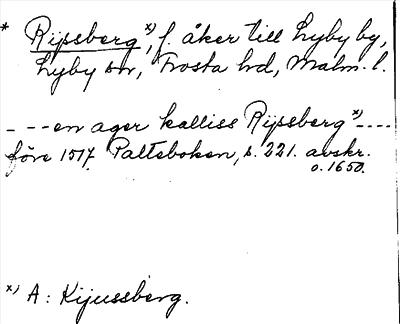 * Rijssberg x), f. åker till Lyby by,
Lyby sn, Frosta hd, Malm. l.
---en ager kalliss Rijssberg x)----
före 1517. Palteboken, s. 221. avskr.
o. 1650.
x) A: Kijussberg.